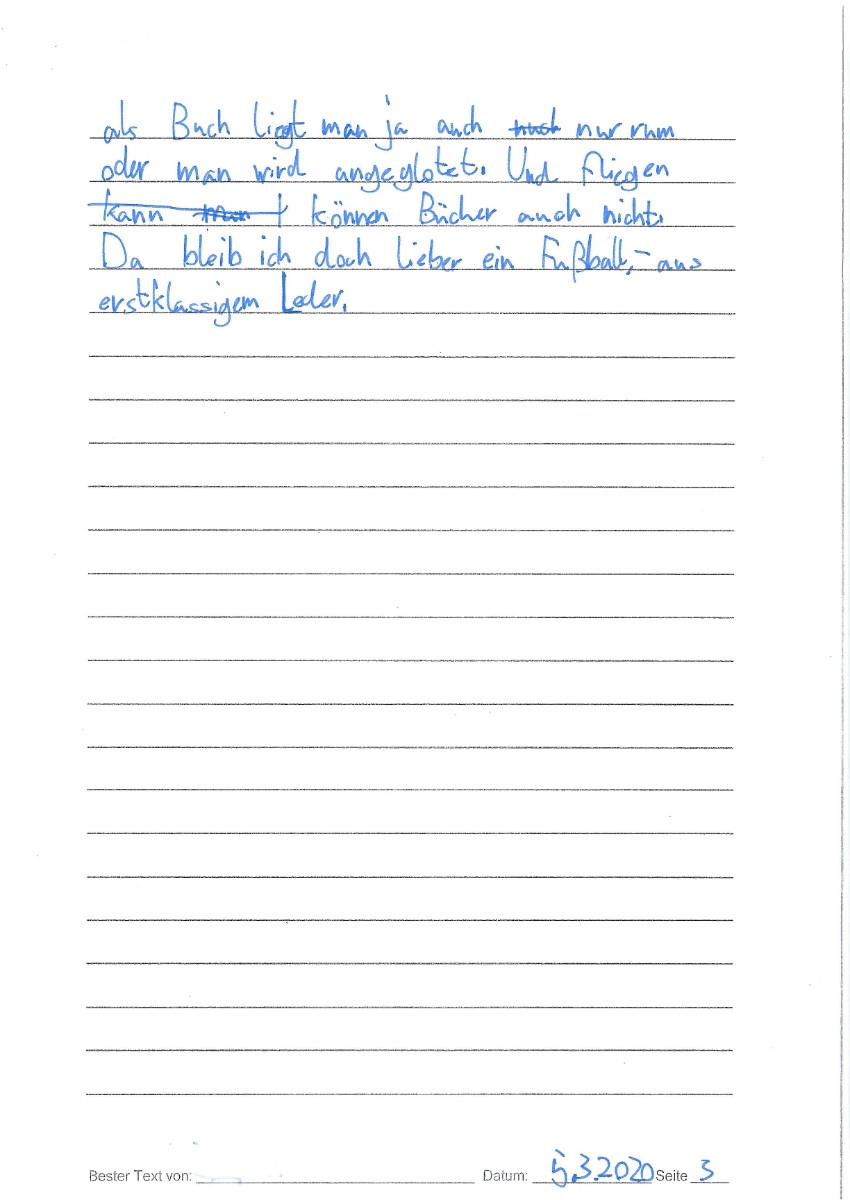 als Buch liegt man ja auch nur rum
oder man wird angeglotzt. Und fliegen
kann man können Bücher auch nicht.
Da bleib ich doch lieber ein Fußball,- aus
erstklassigem Leder.
Bester Text von: Datum: 5.3.2020 Seite 3